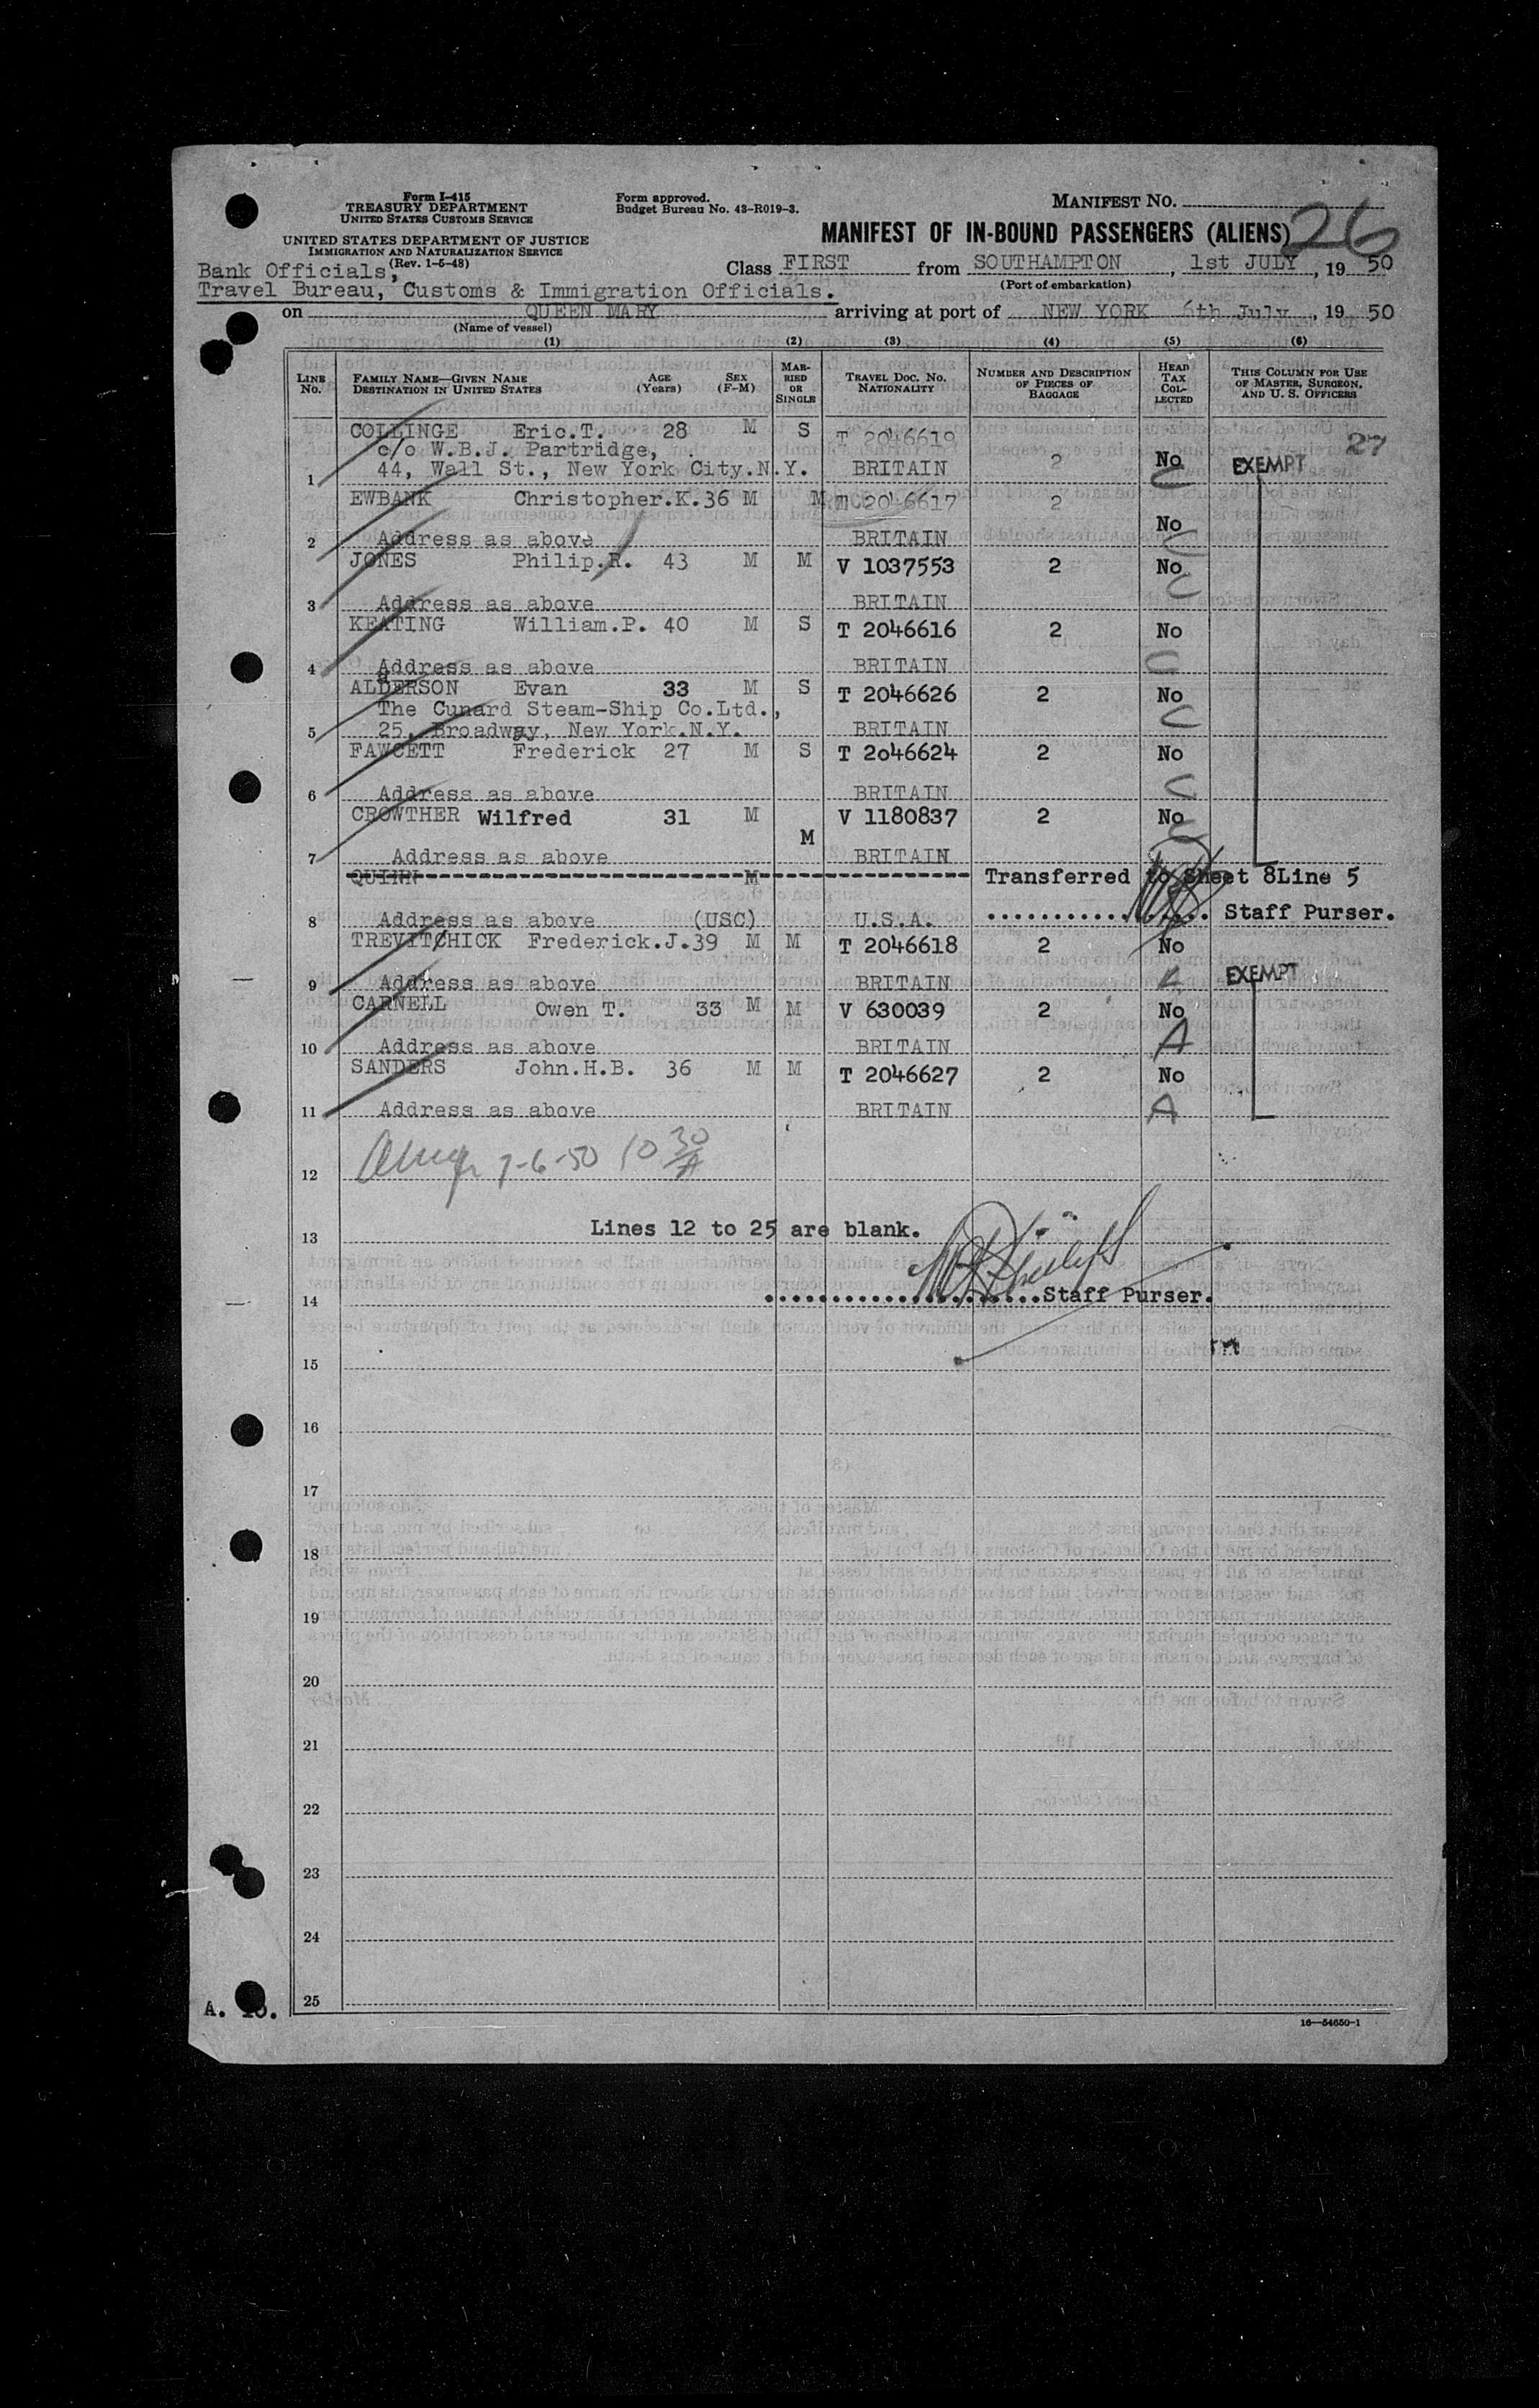 Form I-415
TREASURY DEPARTMENT
UNITED STATES CUSTOMS SERVICE
Form approved.
Budget Bureau No. 43-R019-3.
MANIFEST NO.
26
UNITED STATES DEPARTMENT OF JUSTICE
IMMIGRATION AND NATURALIZATION SERVICE
(Rev. 1-5-48)
MANIFEST OF IN-BOUND PASSENGERS (ALIENS)
Bank Officials,
Travel Bureau, Customs & Immigration Officials.
Class FIRST from SOUTHAMPTON, 1st JULY, 19 50
(Port of embarkation)
on QUEEN MARY arriving at port of NEW YORK 6th July, 19 50
(Name of vessel)
(1) (2) (3) (4) (5) (6)
LINE NO. FAMILY NAME—GIVEN NAME DESTINATION IN UNITED STATES AGE (Years) SEX (F-M) MARRIED OR SINGLE TRAVEL DOC. NO. NATIONALITY NUMBER AND DESCRIPTION OF PIECES OF BAGGAGE HEAD TAX COLLECTED THIS COLUMN FOR USE OF MASTER, SURGEON, AND U. S. OFFICERS
COLLINGE Eric.T. 28 M S T 2046619 27
c/o W.B.J. Partridge,
1 44, Wall St., New York City.N.Y. BRITAIN 2 No EXEMPT
C
EWBANK Christopher.K.36 M M T 2046617 2
2 Address as above BRITAIN No
C
JONES Philip.R. 43 M M V 1037553 2 No
C
3 Address as above BRITAIN
KEATING William.P. 40 M S T 2046616 2 No
4 Address as above BRITAIN C
ALDERSON Evan 33 M S T 2046626 2 No
The Cunard Steam-Ship Co.Ltd.,
C
5 25, Broadway, New York.N.Y. BRITAIN
FAWCETT Frederick 27 M S T 2046624 2 No
6 Address as above BRITAIN C
CROWTHER Wilfred 31 M M V 1180837 2 No
C
7 Address as above BRITAIN
QUINN M Transferred to Sheet 8Line 5
8 Address as above (USC) U.S.A. Staff Purser.
TREVITCHICK Frederick.J.39 M M T 2046618 2 No
9 Address as above BRITAIN EXEMPT
CARNELL Owen T. 33 M M V 630039 2 No
10 Address as above BRITAIN A
SANDERS John.H.B. 36 M M T 2046627 2 No
11 Address as above BRITAIN A
12 7-6-50 10 30/A
13 Lines 12 to 25 are blank.
14 Staff Purser.
15
16
17
18
19
20
21
22
23
24
25
A.
16—54650-1